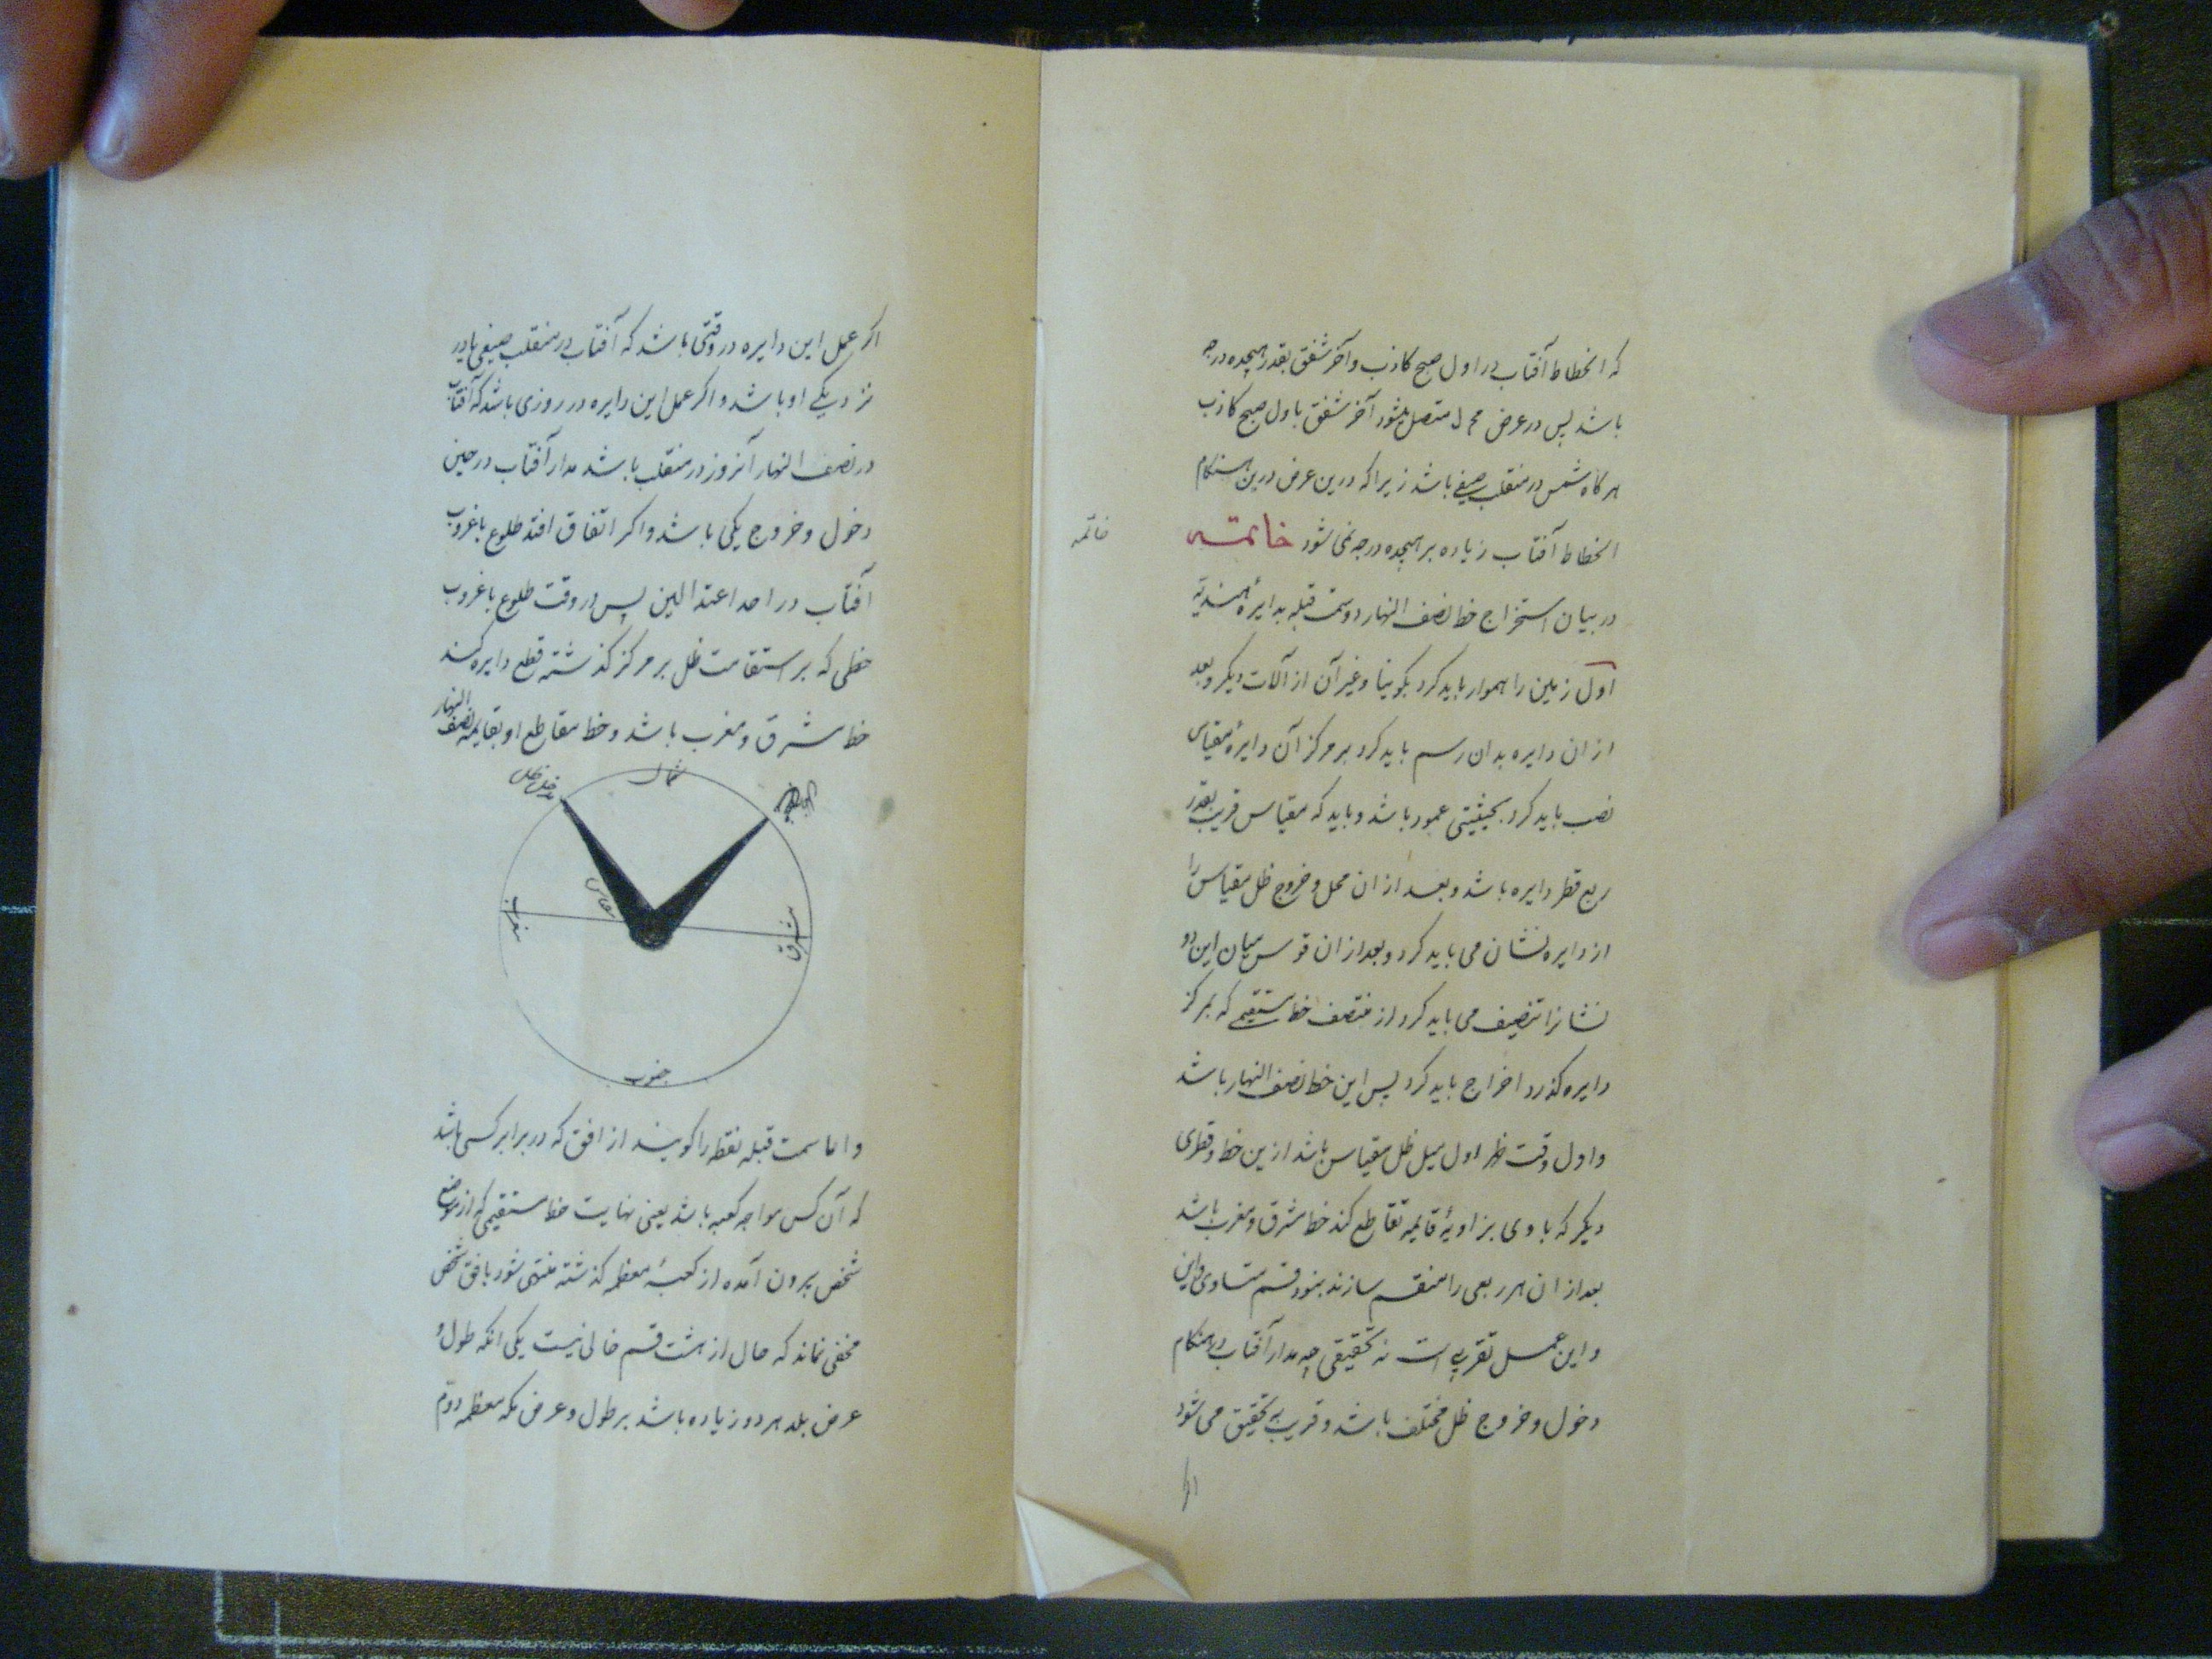 که انحطاط آفتاب در اول صبح کاذب و آخر شفق بقدر هیجده درجه
باشد پس در عرض مح ل متصل میشود آخر شفق باول صبح کاذب
هرگاه شمس در منقلب صیفی باشد زیراکه درین عرض درین هنگام
انحطاط آفتاب زیاده بر هیجده درجه نمی شود خاتمه
خاتمه
در بیان استخراج خط نصف النهار و سمت قبله بدایرهٔ هندیّه
اول زمین را هموار باید کرد بکونیا و غیر آن از آلات دیگر و بعد
از ان دایره بدان رسم باید کرد بر مرکز آن دایرهٔ مقیاس
نصب باید کرد بحیثیتی عمود باشد و باید که مقیاس قریب بقدر
ربع قطر دایره باشد و بعد از ان محل و خروج ظل مقیاس را
از دایره نشان می باید کرد و بعد از ان قوس میان این دو
نشانرا تنصیف می باید کرد از منتصف خط مستقیمی که بمرکز
دایره گذرد اخراج باید کرد پس این خط نصف النهار باشد
و اول وقت ظهر اول میل ظل مقیاس باشد ازین خط و قطری
دیگر که با وی بزاویهٔ قایمه تقاطع کند خط مشرق و مغرب باشد
بعد از ان هر ربعی را منقسم سازند بنود قسم متساوی و این
و این عمل تقریبی است نه تحقیقی چه مدار آفتاب در هنگام
دخول و خروج ظل مختلف باشد و قریب به تحقیق می شود
اگر عمل این دایره در وقتی باشد که آفتاب در منقلب صیفی یا در
نزدیکے او باشد و اگر عمل این دایره در روزی باشد که آفتاب
در نصف النهار آنروز در منقلب باشد مدار آفتاب در حین
دخول و خروج یکی باشد و اگر اتفاق افتد طلوع یا غروب
آفتاب در احد اعتدالین پس در وقت طلوع یا غروب
خطی که بر استقامت ظل بر مرکز گذشته قطع دایره کند
خط مشرق و مغرب باشد و خط مقاطع او بقایمه نصف النهار
شمال
مدخل ظل
مقیاس
مغرب
مشرق
جنوب
و اما سمت قبله نقطه را گویند از افق که در برابر کسی باشد
که آن کس مواجه کعبه باشد یعنی نهایت خط مستقیمی که از موضع
شخص برون آمده از کعبهٔ معظمه گذشته منتهی شود بافق شخص
مخفی نماند که حال از هشت قسم خالی نیست یکی انکه طول و
عرض بلد هر دو زیاده باشد بر طول و عرض مکه معظمه دوّم